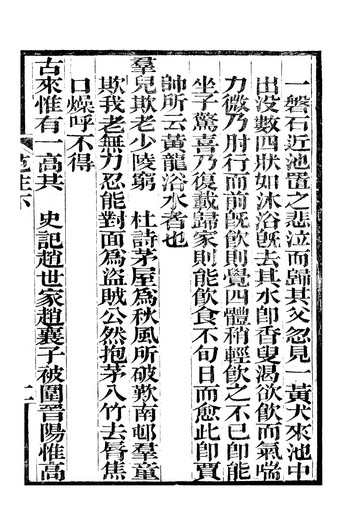 一磐石近池置之悲泣而歸其父忽見一黃犬來池中
出没數四狀如沐浴旣去其水卽香叟渴欲飲而氣喘
力微乃肘行而前旣飲則覺四體稍輕飲之不已卽能
坐子驚喜乃復載歸家則能飲食不旬日而愈此卽買
帥所云黃龍浴水者也
羣兒欺老少陵窮 杜詩茅屋為秋風所破歎南邨羣童
欺我老無力忍能對面為盜賊公然抱茅入竹去脣焦
口燥呼不得
古來惟有一高共 史記趙世家趙襄子被圍晉陽惟高